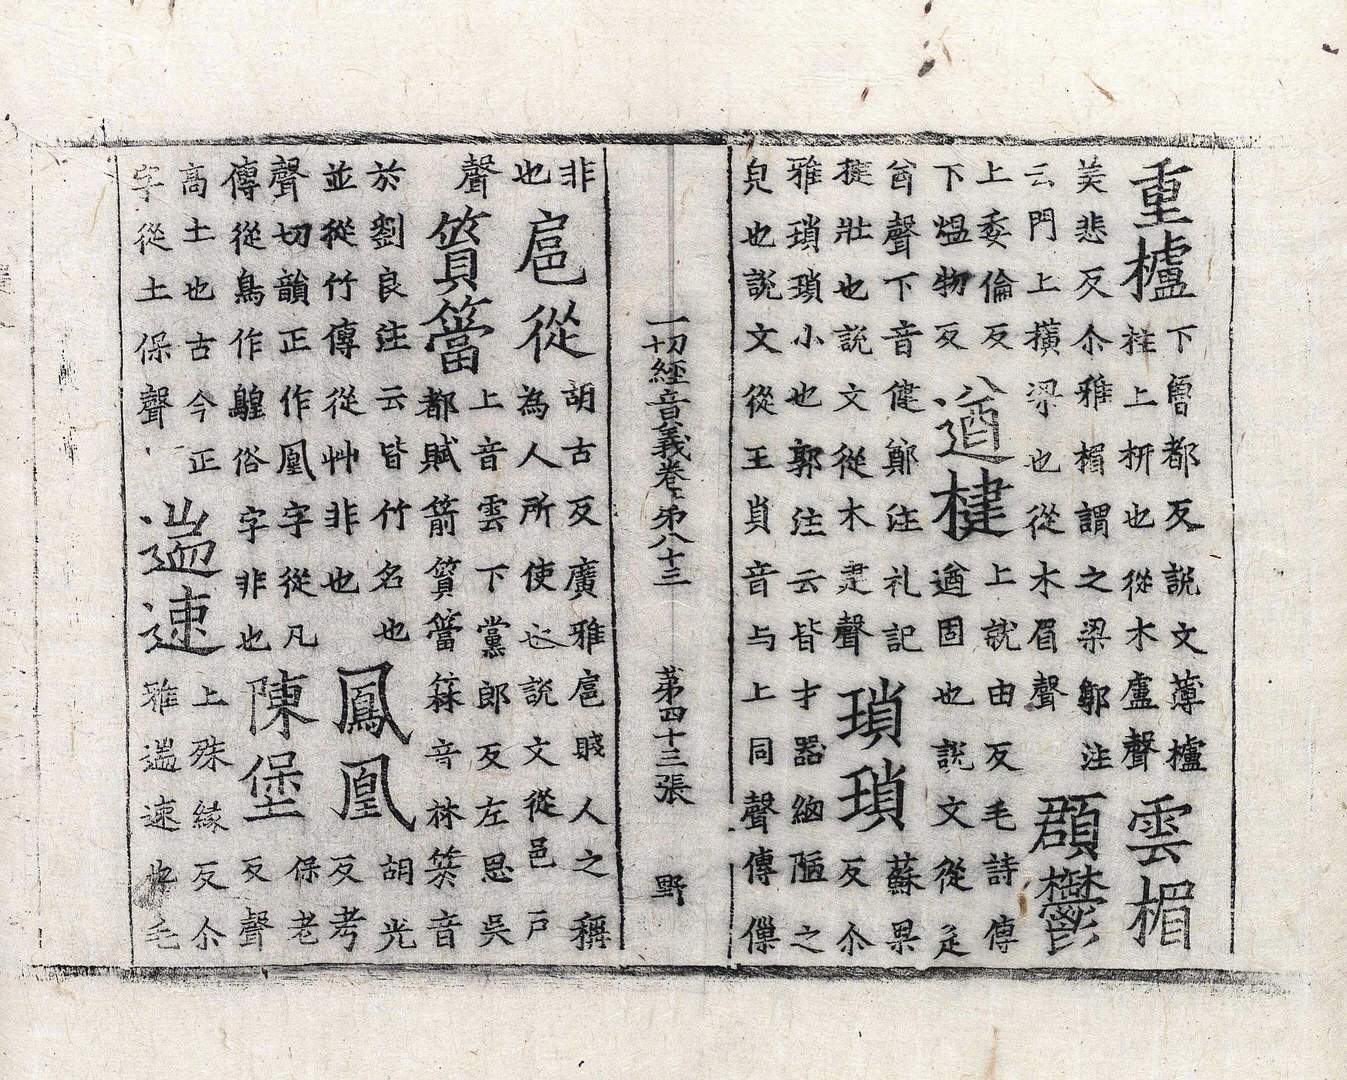 重櫨
下魯都反說文薄櫨
柱上枅也從木盧聲
雲楣
美悲反尒雅楣謂之梁郭注
云門上橫梁也從木眉聲
頵鬱
上委倫反
下熅物反
遒楗
上就由反毛詩傳
遒固也說文從辵
酋聲下音健鄭注礼記
揵壯也說文從木建聲
瑣瑣
蘇果
反尒
雅瑣瑣小也郭注云皆才器細陋之
皃也說文從王𧴪音与上同聲傳
一切經音義卷第八十三 第四十三張 野
非
也
扈從
胡古反廣雅扈賤人之稱
為人所使也說文從邑戶
聲
篔簹
上音雲下黨郎反左思吳
都賦箭篔簹箖音林箊音
於劉良注云皆竹名也
並從竹傳從艸非也
鳳凰
胡光
反考
聲切韻正作凰字從凡
傳從鳥作䳨俗字非也
陳堡
保老
反聲
高土也古今正
字從土保聲
遄速
上殊緣反尒
雅遄速也毛